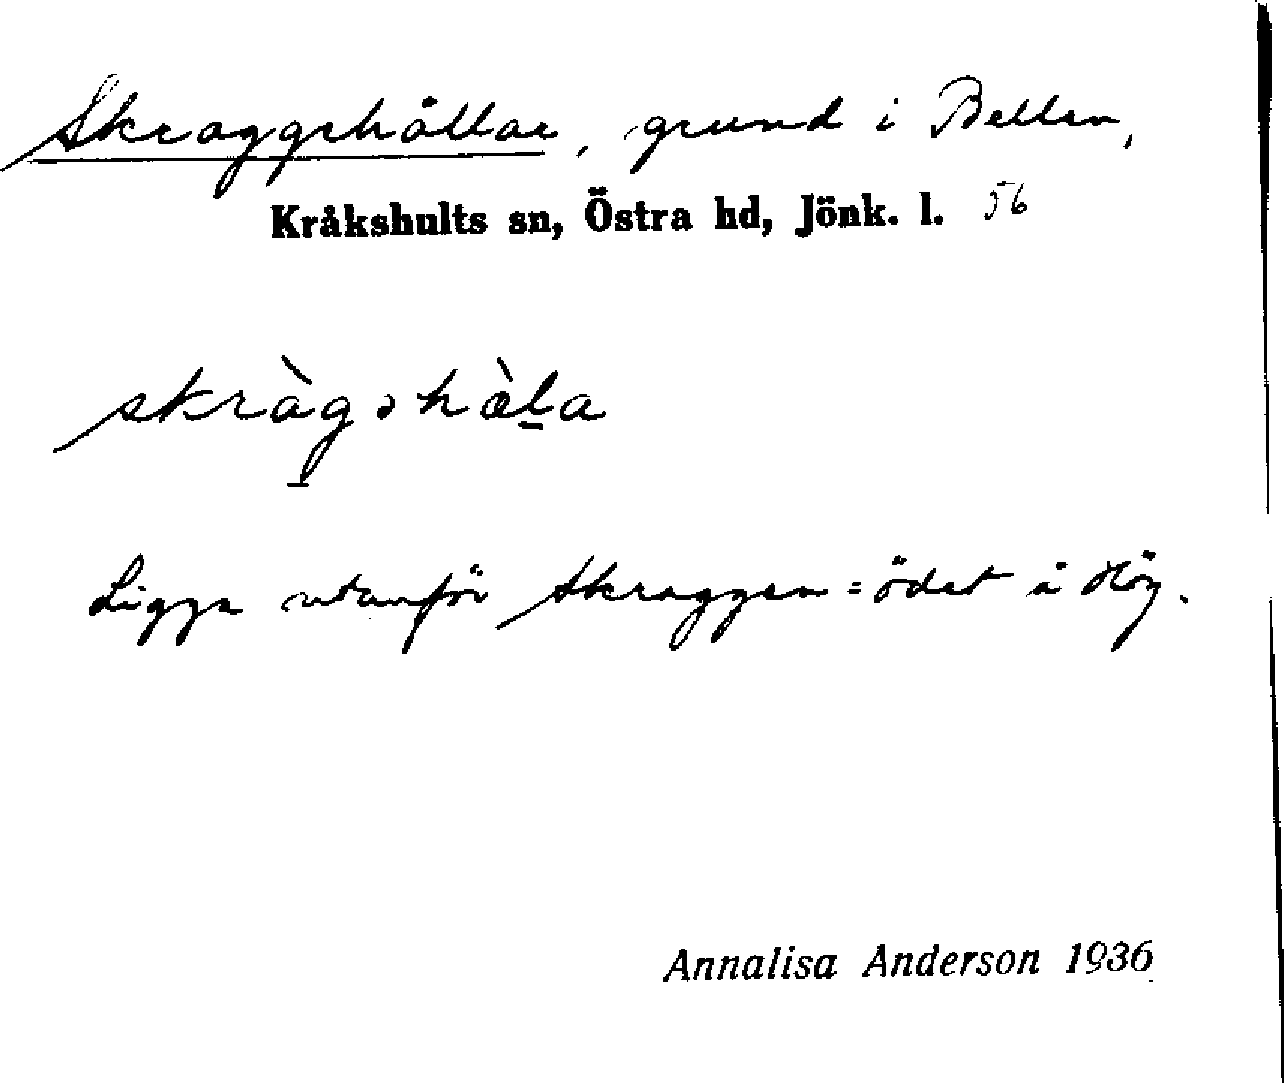 Skraggshällar, grund i Bellen,
Kråkshults sn, Östra hd, Jönk. l. 56
skràgshàla
Ligga utanför Skraggen = ödet å Hög.
Annalisa Anderson 1936